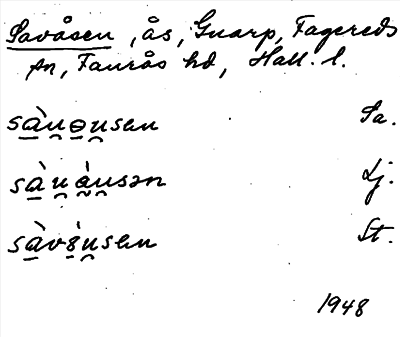 Savåsen, ås, Gnarp, Fagereds
sn, Faurås hd, Hall. l.
sàu̯ɵu̯sen Sa.
sàu̯àu̯sən Lj.
sàvɜ̀u̯sen St.
1948